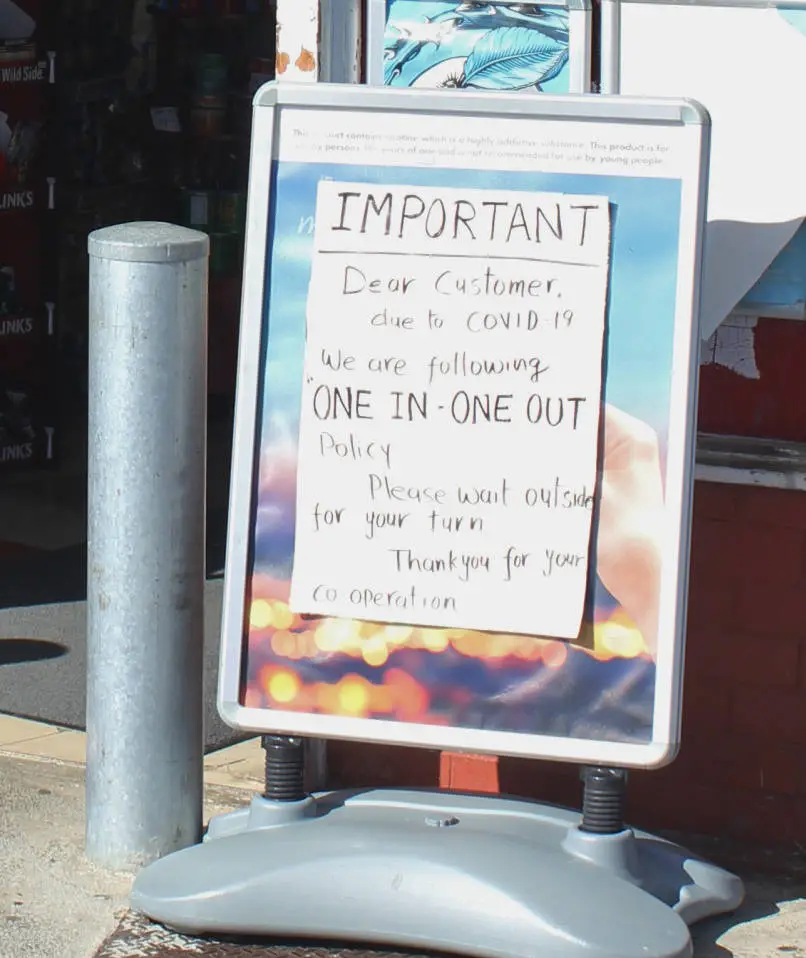 Wild Side
This product contains nicotine which is a highly addictive substance. This product is for
persons
of
recommended for use by young people.
IMPORTANT
Dear Customer.
due to COVID-19
We are following
"ONE IN - ONE OUT
Policy
Please wait outside
for your turn
Thankyou for your
co operation
LINKS
INKS
INKS